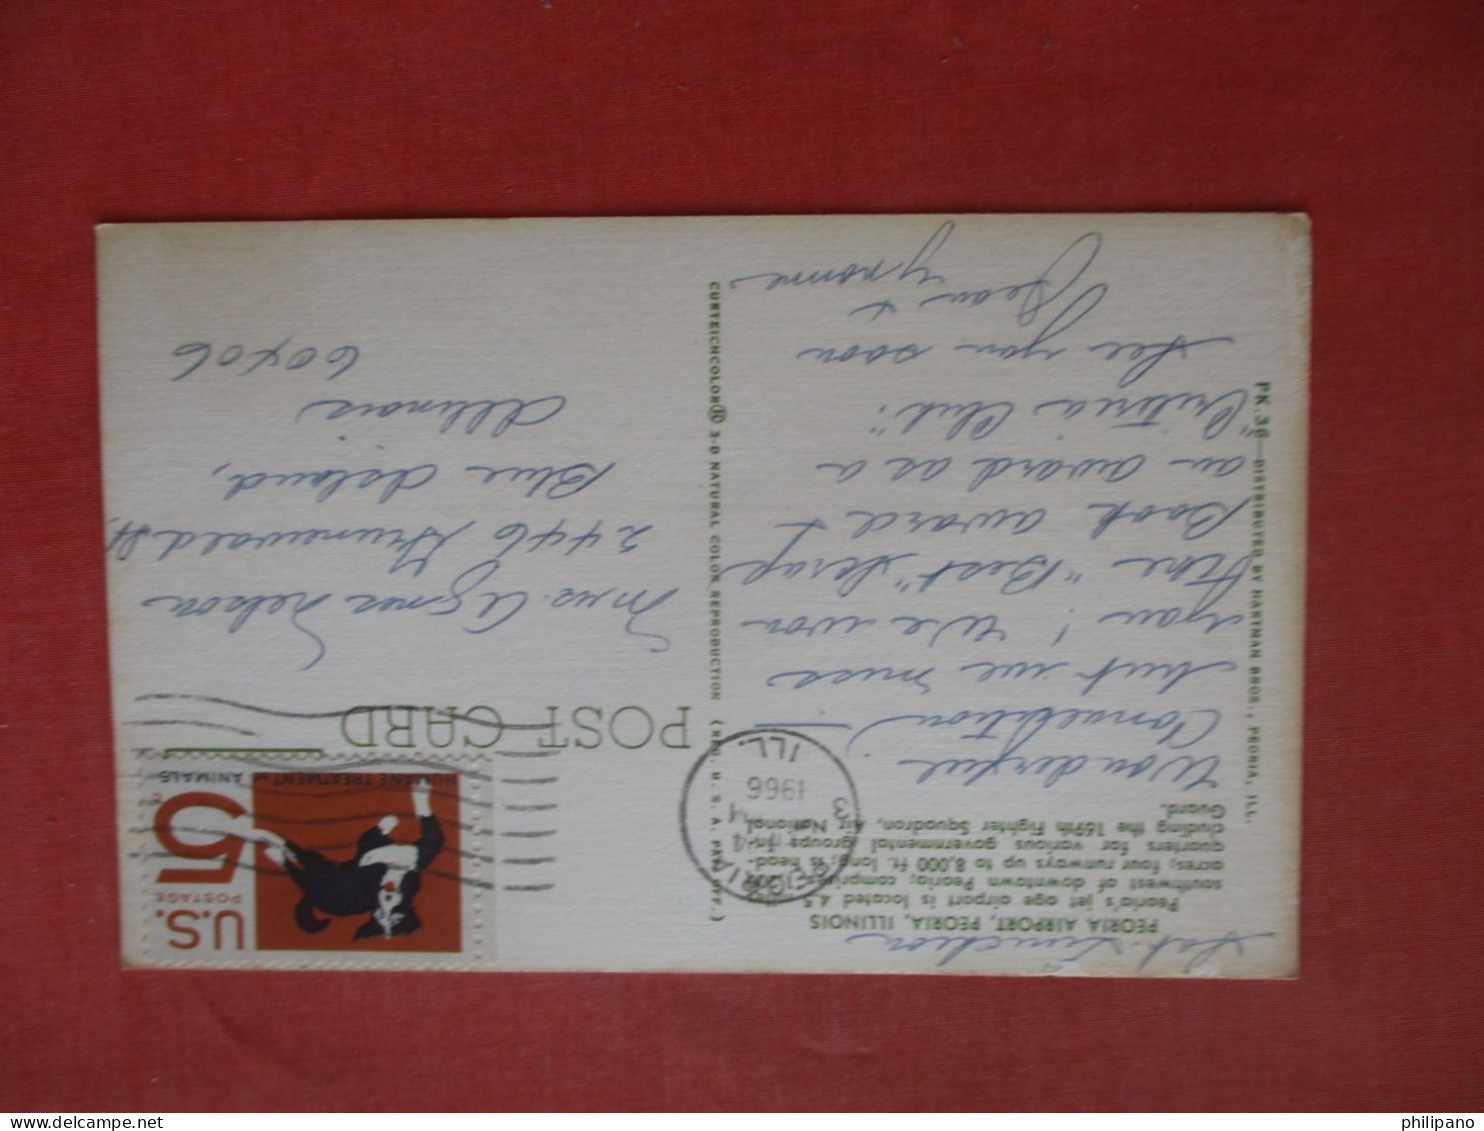 Sat. Luncheon
PEORIA AIRPORT, PEORIA, ILLINOIS
Peoria's jet age airport is located 4.5
southwest of downtown Peoria; comprises
acres; four runways up to 8,000 ft. long; is head-
quarters for various governmental groups in-
cluding the 169th Fighter Squadron, Air National
Guard.
Wonderful
Convention
but we miss
you! We won
the "Best" Scrap
Book award &
an award as a
"Criteria Club".
See you soon
Jean &
PK.36—DISTRIBUTED BY HARTMAN BROS., PEORIA, ILL.
CURTEICHCOLOR® 3-D NATURAL COLOR REPRODUCTION (REG. U. S. A. PAT. OFF.)
POST CARD
PEORIA
1966
ILL.
U.S.
POSTAGE
5
HUMANE TREATMENT of ANIMALS
Mrs. Agnes Nelson
2446 Grunewald St.
Blue Island,
Illinois
60406
philipano